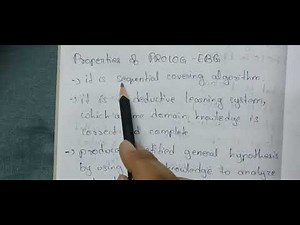 Properties of PROLOG-EBG
→ it is sequential covering algorithm
→ it is deductive learning system,
which domain knowledge is
correct and complete
→ general hypothesis
by using to analyze